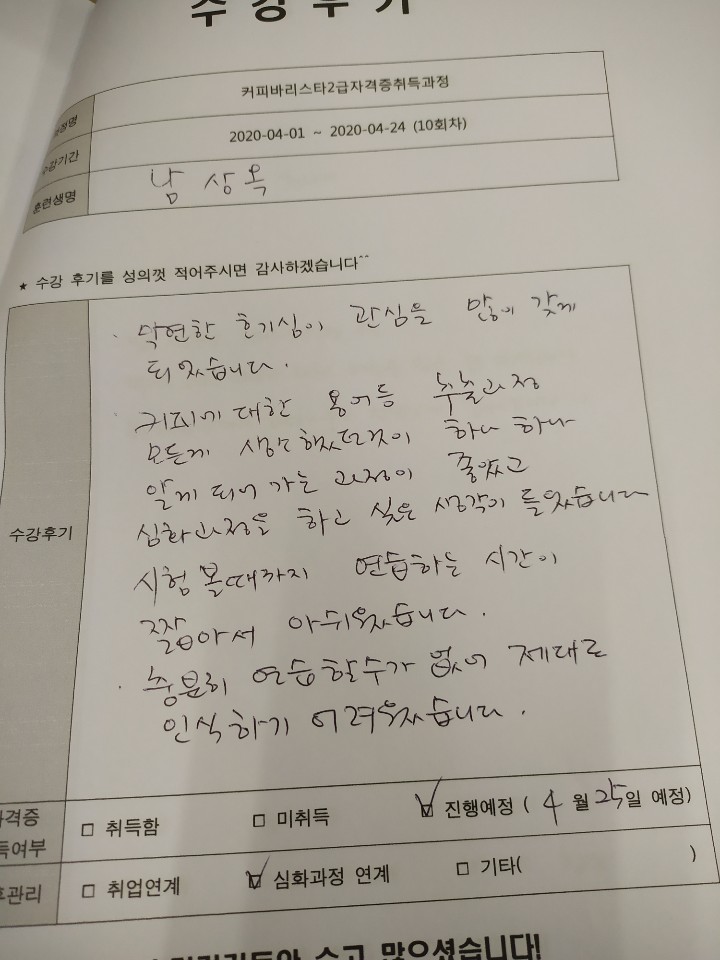 수 강 후 기
과정명 커피바리스타2급자격증취득과정
수강기간 2020-04-01 ~ 2020-04-24 (10회차)
훈련생명 남 상 옥
★ 수강 후기를 성의껏 적어주시면 감사하겠습니다^^
수강후기
· 막연한 호기심이 관심을 많이 갖게
되었습니다.
· 커피에 대한 용어등 추출과정
모든게 생소했던것이 하나 하나
알게 되어 가는 과정이 좋았고
심화과정을 하고 싶은 생각이 들었습니다
시험 볼때까지 연습하는 시간이
짧아서 아쉬웠습니다.
· 충분히 연습할수가 없어 제대로
인식하기 어려웠습니다.
자격증
득여부
□ 취득함 □ 미취득 ☑ 진행예정 ( 4 월 25일 예정)
후관리 □ 취업연계 ☑ 심화과정 연계 □ 기타( )
수고 많으셨습니다!